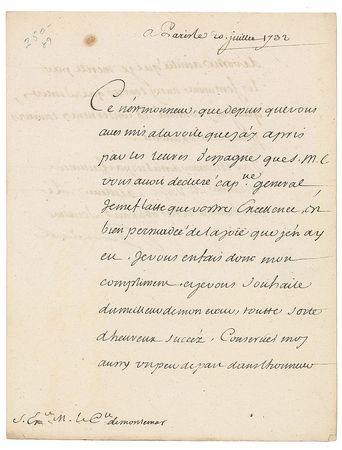 250-
89
a Paris le 20. juillet 1732
Ce nest monsieur, que depuis que vous
aves mis a la voile que j'ay apris
par les lettres d'espagne que S. M. C
vous avoit declaré cap.ne general
Je me flatte que vostre Excellence, est
bien persuadée de la joïe que j'en ay
eu. Je vous en fais donc mon
compliment, et je vous souhaite
du meilleur de mon coeur, toutte sorte
d'heureux succéz. Conservés moy
aussy un peu de part dans lhonneur
S. Exce. M. Le Cte de montemar